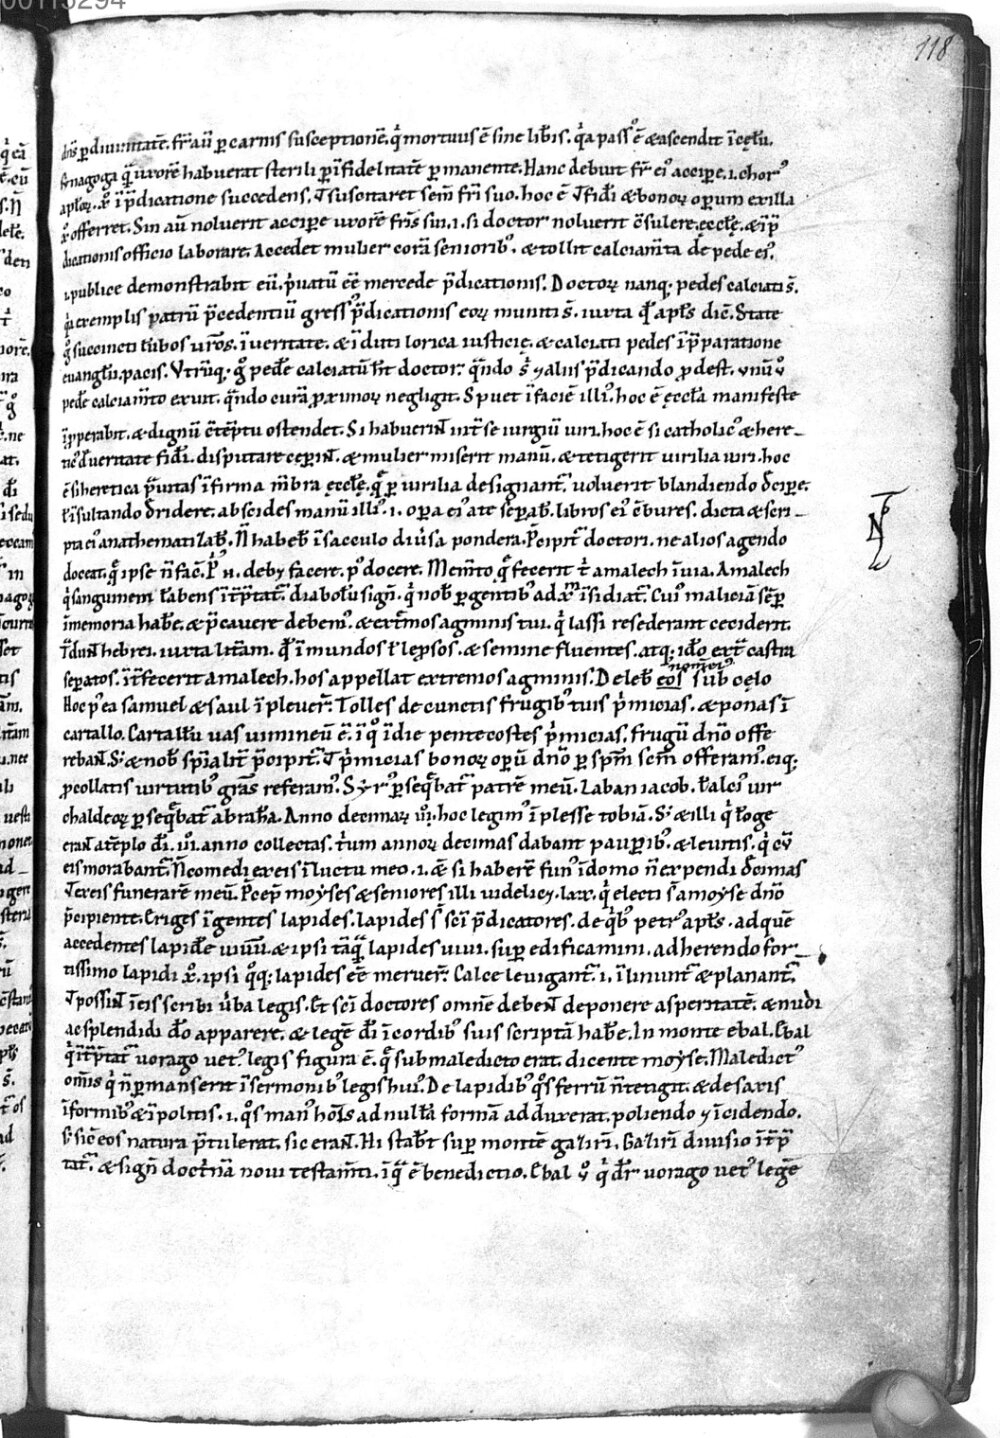 00115294
118
dn̄s ꝑ diuinitatē. fr̄ aū ꝑ carnis susceptionē. q̇ mortuus ē sine lib̄is. q̇a pass᷒ ē & ascendit ī cęlū.
synagoga quā uxorē habuerat sterili ꝑ īfidelitatē ꝑmanente. Hanc debunt fr̄ ei᷒ accipe. i. chor᷒
apl̄oꝝ. xp̄i p̄dicatione succedens. ut suscitaret sem̄ fr̄i suo. hoc ē ut fidēi & bonoꝝ operum ex illa
xp̄o offerret. Sin aū noluerit accipe uxorē fr̄is sui. i. si doctor noluerit cōsulere ęccłę. & ī p̄
dicationis officio laborare. Accedet mulier corā seniorib᷒. & tollit calciam̄ta de pede ei᷒.
i. publice demonstrabit eū. p̄uatū eē mercede p̄dicationis. Doctoꝝ nanq; pedes calciati s̄.
q̇ exemplis patrū p̄cedentiū gress᷒ p̄dicationis eoꝝ muniti s̄. iuxta qd̄ apl̄s dic̄. State
g᷒ succincti lūbos ur̄os. ī ueritate. & īduti lorica iusticię. & calciati pedes ī p̄paratione
euanglīi pacis. Vtrūq; g᷒ pedē calciatū h̄t doctor. quando s᷒ & aliis p̄dicando ꝓdest. unū u᷒
pedē calciam̄to exuit. quando curā ꝓximoꝝ negligit. Spuet ī faciē illi᷒. hoc ē ęccła manifeste
īꝓperabit. & dignū cōtēptu ostendet. Si habuerint int̄ se iurgiū uiri. hoc ē si catholic᷒ & here-
tic᷒ de ueritate fidei. disputare cep̄int. & mulier miserit manū. & tetigerit uirilia uiri. hoc
ē si heretica prauitas īfirma m̄bra ęccłę. quę ꝑ uirilia designant᷒. uoluerit blandiendo decipe.
ł īsultando deridere. abscides manū illi᷒. i. oꝑa ei᷒ a te seꝑab. libros ei᷒ cōbures. dicta & scri-
pta ei᷒ anathematizab. N̄ habeb̄ ī sacculo diūsa pondera. P̄cipit᷒ doctori. ne alios agendo
doceat. qd̄ ipse n̄ fac̄. deby facere. p᷒ docere. Mem̄to quę fecerit t᷒ amalech ī uia. Amalech
q̇ sanguinem lābens īt̄p̄tat᷒. diabolū sign̄. q̇ nob̄ ꝑ gentib᷒ ad īsidiat᷒. Cui᷒ maliciā sēꝑ
ī memoria habē. & p̄cauere debem᷒. & extremos agminis tui. q̇ lassi resederant ceciderit.
T᷒dunt hebrei. iuxta litterā. qd̄ īmundos ł lep̄sos. & semine fluentes. atq; ideo extra castra
seꝑatos. īt̄fecerit amalech. hos appellat extremos agminis. Deleb̄ nom̄ ei᷒ sub cęlo
Hoc p᷒ea samuel & saul īpleuer̄. Tolles de cunctis frugib᷒ tuis p̄micias. & ponas ī
cartallo. Cartallū uas uimineū ē. ī q᷒ ī die pentecostes p̄micias. frugū dn̄o offe
rebant. S; & nob̄ spīalit̄ p̄cipit᷒. ut p̄micias bonoꝝ operū dn̄o ꝑ spm̄ scm̄ offeram᷒. eiq;
ꝓ collatis uirtutib᷒ grās referam᷒. Syr᷒ ꝑseq̄bat᷒ patrē meū. Laban iacob. ł alci᷒ uir
chaldeoꝝ ꝑseq̄bat᷒ abrahā. Anno decimaꝝ iii. hoc legim᷒ īplesse tobiā. S; & illi q̇ lōge
erant a tēplo dēi. iii. anno collectas. t̄um annoꝝ decimas dabant pauꝑib᷒. & leuitis. q̇ cū
eis morabant᷒. N̄ comedi ex eis ī luctu meo. i. & si haberē fun᷒ ī domo n̄ expendi decimas
ut ex eis funerarē meū. P̄cep̄ moyses & seniores illi uidelicet lxx. q̇ electi s̄ a moyse dn̄o
p̄cipiente. Eriges īgentes lapides. lapides s̄ sc̄i p̄dicatores. de q̇b᷒ petr᷒ apl̄s. ad quē
accedentes lapidē uiuū. & ipsi tāquā lapides uiui. suꝑedificamini. adherendo for-
tissimo lapidi xp̄o. ipsi q᷒q; lapides eē meruer̄. Calce leuigant᷒. i. īliniunt᷒ & planant᷒.
ut possint ī eis scribi ūba legis. Et sc̄i doctores omnē debent deponere asperitatē. & nudi
ac splendidi dēo apparere. & legē dēi ī cordib᷒ suis scriptā habē. In monte ebal. Ebal
q̇ īt̄p̄tat᷒ uorago uet᷒ legis figura ē. quę sub maledicto erat. dicente moyse. Maledict᷒
om̄is q̇ n̄ ꝑmanserit ī sermonib᷒ legis hui᷒. De lapidib᷒ q᷒s ferrū n̄ tetigit. & de saxis
īformib᷒ & īpolitis. i. q᷒s man᷒ hōis ad nullā formā adduxerat. poliendo & īcidendo.
s; sic eos natura p̄tulerat. sic erant. Hi stabt̄ suꝑ montē gazirī. Gazirī diuisio īt̄p̄
tat᷒. & sign̄ doctrinā noui testam̄ti. ī qua ē benedictio. Ebal u᷒ q̇ dr̄ uorago uet᷒ legē